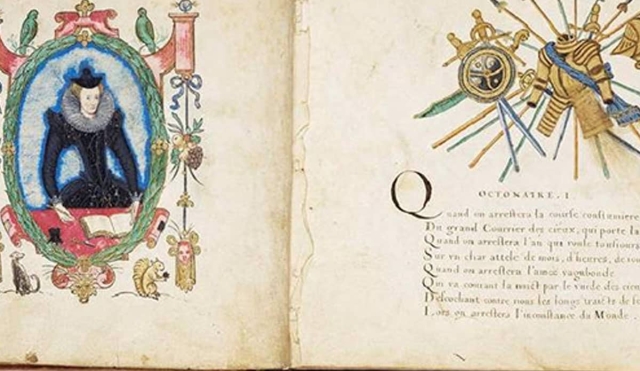 OCTONAIRE. I
Quand on arrestera la course coustumiere
Du grand Courrier des cieux, qui porte la
Quand on arrestera l'an qui roule tousiours
Sur vn char attelé de mois, d'heures, de
Quand on arrestera l'armee vagabonde
Qui va courant la nuict par le vuide des
Descochant contre nous les longs traicts de
Lors on arrestera l'inconstance du Monde.